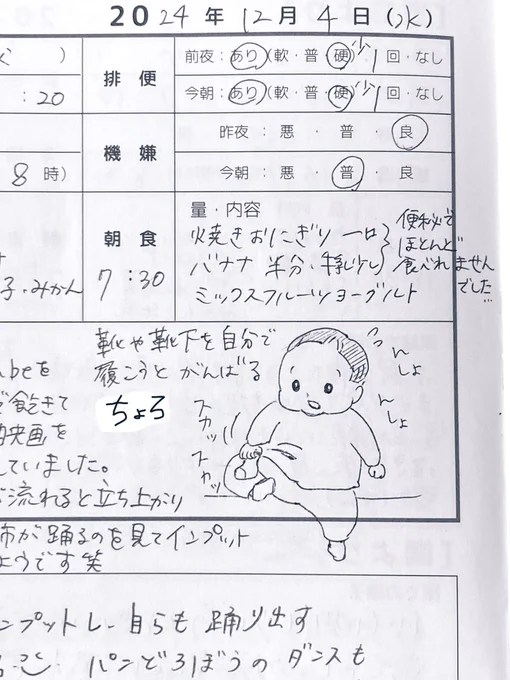 2024年 12月 4日(水)
排便
前夜：あり(軟・普・硬)少1回・なし
今朝：あり(軟・普・硬)少1回・なし
：20
機嫌
昨夜：悪・普・良
今朝：悪・普・良
8時)
朝食
7：30
量・内容
焼きおにぎり 一口
バナナ 半分、牛乳少し
ミックスフルーツヨーグルト
便秘で
ほとんど
食べれません
でした
子・みかん
靴や靴下を自分で
履こうと がんばる
ちょろ
んしょ
んしょ
スカッ
スカッ
beを
飽きて
映画を
していました。
流れると立ち上がり
が踊るのを見てインプット
ようです笑
ンプットし、自らも 踊り出す
パンどろぼうの ダンスも